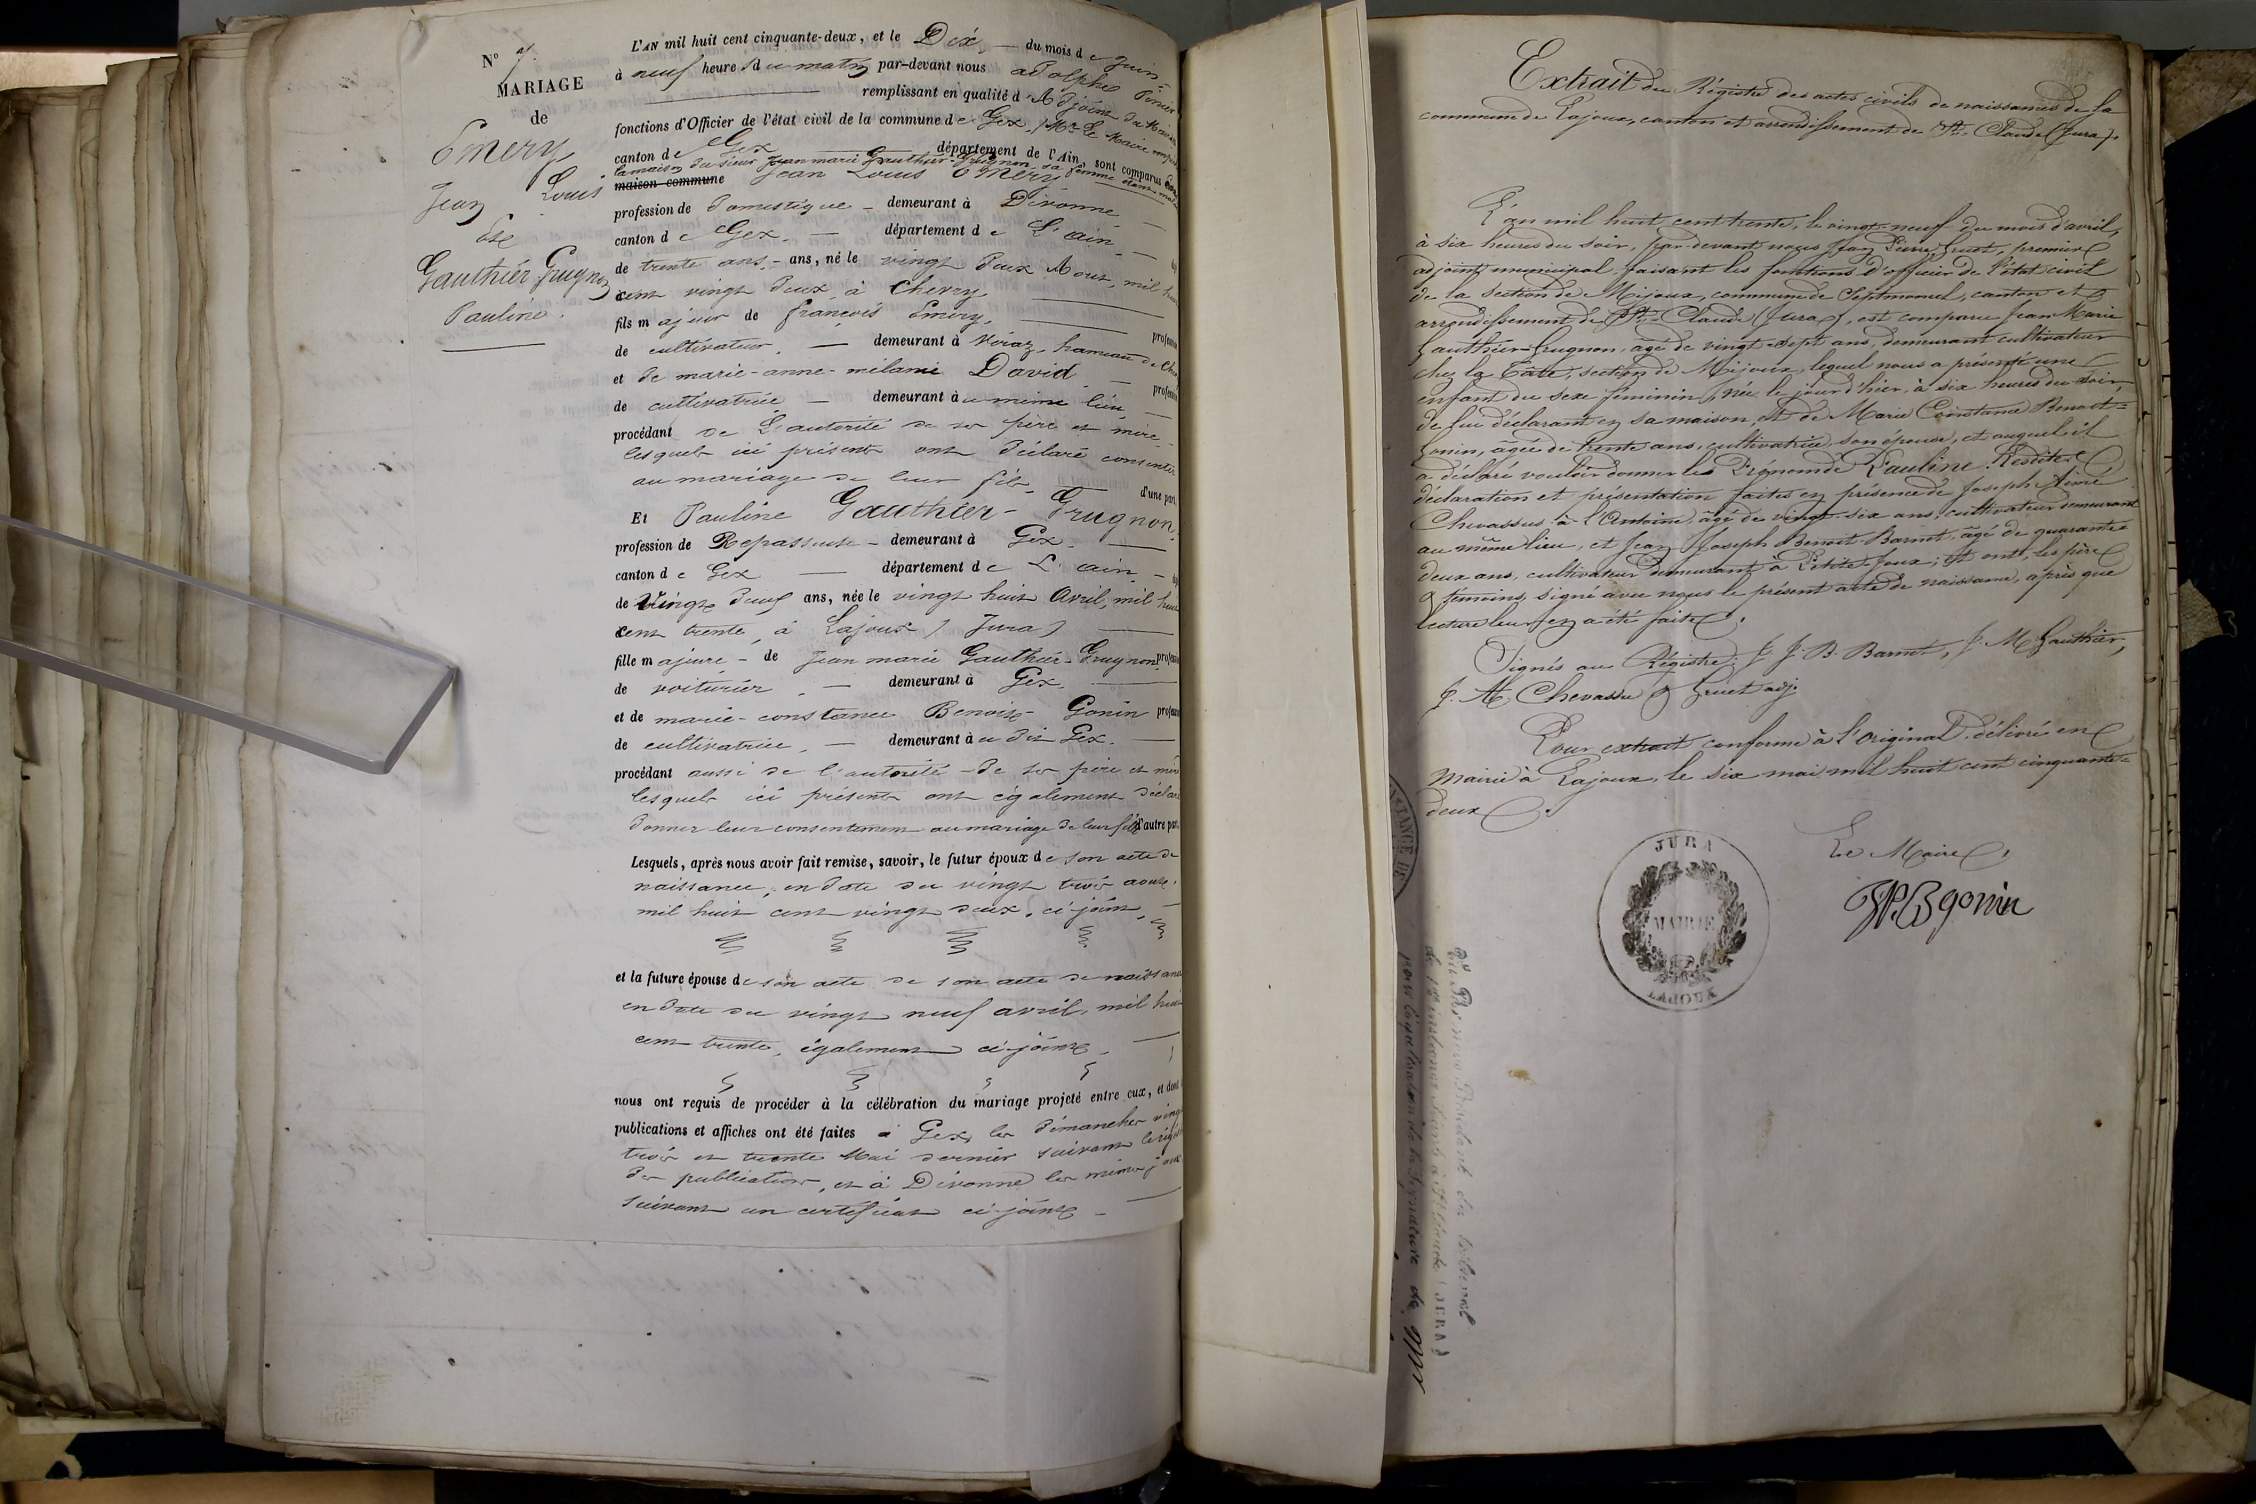 N° 7
MARIAGE
de
Emery
Jean Louis
Et
Gauthier-Grugnon
Pauline.
L'AN mil huit cent cinquante-deux, et le Dix du mois de Juin
à neuf heures du matin par-devant nous adolphe
remplissant en qualité d'Adjoint du Maire
fonctions d'Officier de l'état civil de la commune de Gex, Mr Le Maire
canton de Gex département de l'Ain, sont comparus dans
la maison du sieur Jean marie Gauthier-Grugnon sa femme étant
maison commune Jean Louis Emery
profession de Domestique - demeurant à Divonne
canton de Gex. - département de L'ain.
de trente ans, - ans, né le vingt deux Aout, mil huit
cent vingt deux, à Chevry
fils majeur de françois Emery, profession
de cultivateur. - demeurant à Véraz, hameau de
et de marie-anne-mélanie David - profession
de cultivatrice - demeurant au même lieu
procédant de L'autorité de ses père et mère
lesquels ici présents ont déclaré consentir
au mariage de leur fils, d'une part,
Et Pauline Gauthier-Grugnon
profession de Repasseuse - demeurant à Gex.
canton de Gex - département de L'ain -
de Vingt deux ans, née le vingt huit Avril, mil huit
cent trente, à Lajoux (Jura)
fille majeure - de Jean marie Gauthier-Grugnon, profession
de voiturier. - demeurant à Gex.
et de marie-constance Benoit-Gonin profession
de cultivatrice. - demeurant au dit Gex.
procédant aussi de l'autorité de ses père et mère
lesquels ici présents ont également déclaré
donner leur consentement au mariage de leur fille d'autre part.
Lesquels, après nous avoir fait remise, savoir, le futur époux de son acte de
naissance, en date du vingt trois aout,
mil huit cent vingt deux, ci-joint,
et la future épouse de son acte de son acte de naissance
en date du vingt neuf avril, mil huit
cent trente, également ci-joint,
nous ont requis de procéder à la célébration du mariage projeté entre eux, et dont
publications et affiches ont été faites à Gex, les dimanches vingt
trois et trente Mai dernier suivant le
de publication, et à Divonne les mêmes jours
suivant un certificat ci-joint -
Extrait du Régistre des actes civils de naissances de la
commune de Lajoux, canton et arrondissement de St. Claude (Jura).
L'an mil huit cent trente, le vingt-neuf du mois d'avril,
à six heures du soir, par-devant nous Jean Pierre Gruet, premier
adjoint municipal, faisant les fonctions d'officier de l'état civil
de la section de Mijoux, commune de Septmoncel, canton et
arrondissement de St. Claude (Jura), est comparu Jean Marie
Gauthier-Grugnon, âgé de vingt-sept ans, demeurant cultivateur
chez la section de Mijoux, lequel nous a présenté une
enfant du sexe féminin, née le jour d'hier, à six heures du soir,
de lui déclarant en sa maison, et de Marie Constance Benoit-
Gonin, âgée de trente ans, cultivatrice, son épouse, et auquel il
a déclaré vouloir donner les Prénom de Pauline. Lesdites
déclaration et présentation faites en présence de Joseph Aimé
Chevassus à l'Antoine, âgé de vingt-six ans, cultivateur demeurant
au même lieu, et Jean Joseph Benoit-Barnet, âgé de quarante
deux ans, cultivateur demeurant à Petite-Joux; et ont, les père
& témoins, signé avec nous le présent acte de naissance, après que
lecture leur en a été faite.
Signés au Régistre: J. J. B. Barnet, J. M. Gauthier,
J. A. Chevassu & Gruet adj.
Pour extrait conforme à l'original délivré en
Mairie à Lajoux, le six mai mil huit cent cinquante-
deux.
Le Maire,
JURA
MAIRIE
LAJOUX
du tribunal
de 1re instance séant à St Claude (JURA)
pour légalisation de la Signature de